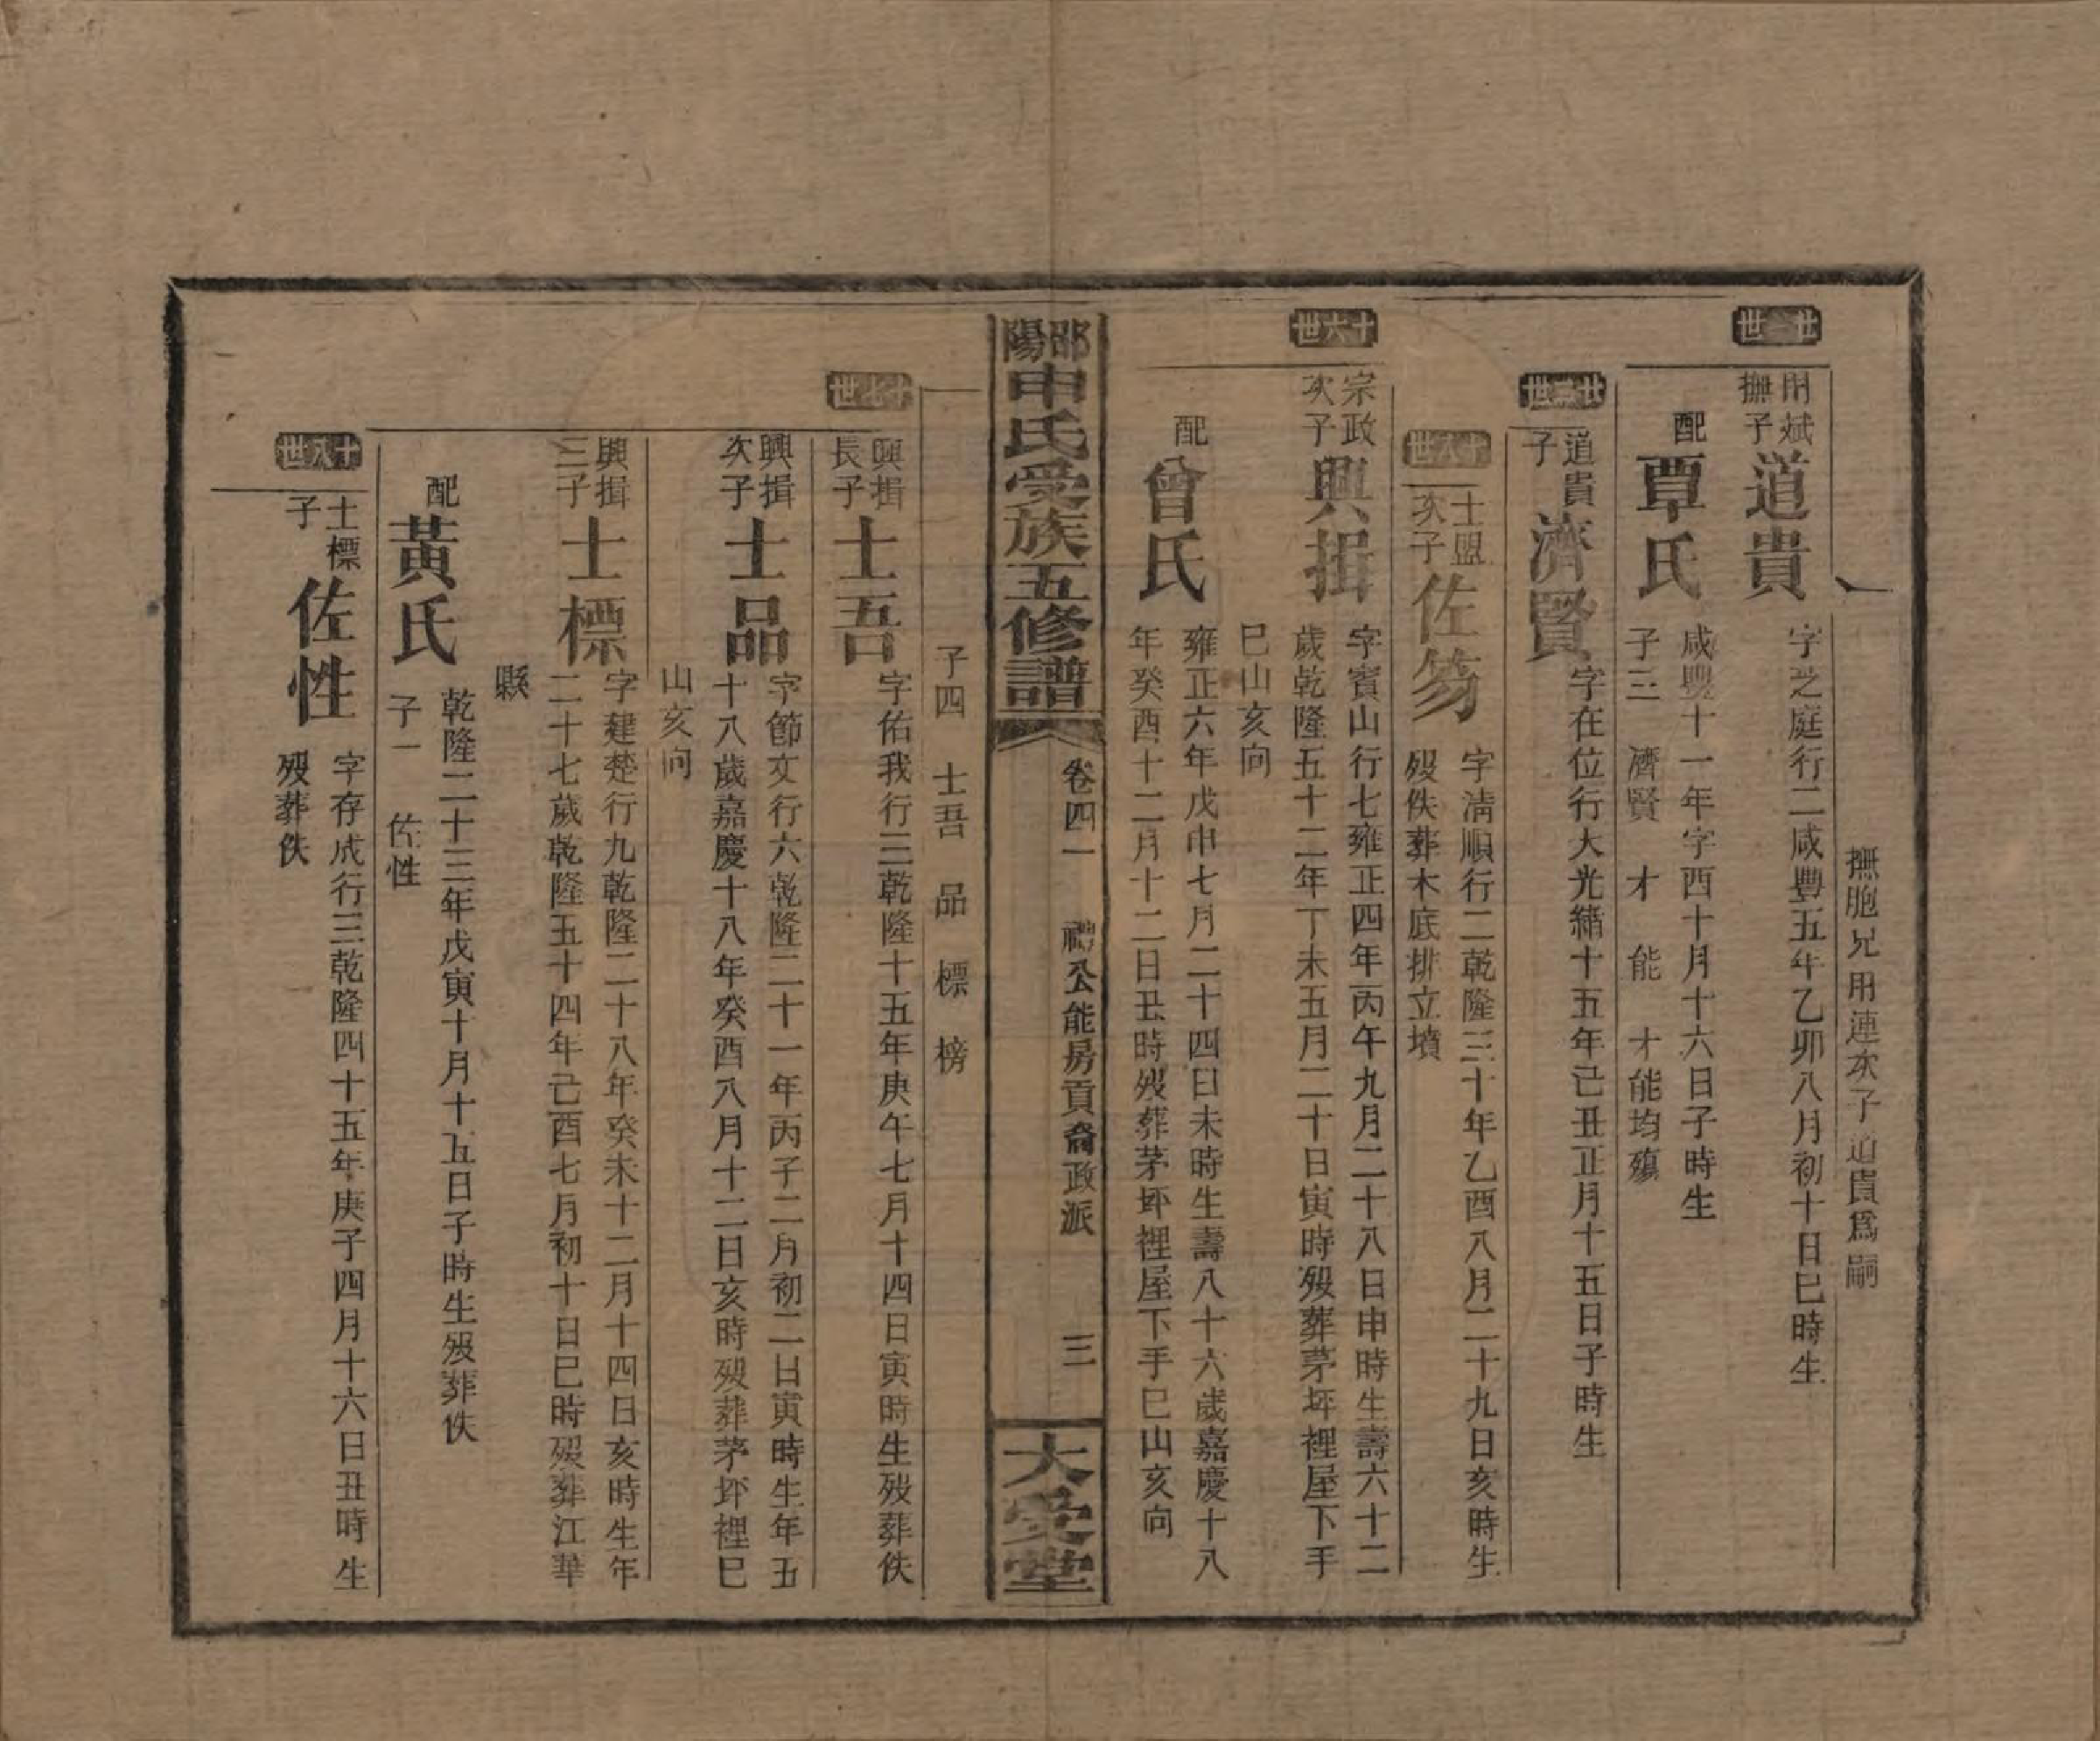 撫胞兄用連次子道貴爲嗣
廿二世
用斌
撫子
道貴
字芝庭行二咸豐五年乙卯八月初十日巳時生
配
覃氏
咸豐十一年字酉十月十六日子時生
子三 濟賢 才 能 才能均殤
廿三世
道貴
子
濟賢
字在位行大光緒十五年己丑正月十五日子時生
十八世
士盟
次子
佐笏
字清順行二乾隆三十年乙酉八月二十九日亥時生
歿佚葬木底排立墳
十六世
宗政
次子
興揖
字賓山行七雍正四年丙午九月二十八日申時生壽六十二
歲乾隆五十二年丁未五月二十日寅時歿葬茅坪裡屋下手
巳山亥向
配
曾氏
雍正六年戊申七月二十四日未時生壽八十六歲嘉慶十八
年癸酉十二月十二日丑時歿葬茅坪裡屋下手巳山亥向
邵陽申氏受族五修譜
卷四一 禮公能房貢裔政派 三
大受堂
子四 士吾 品 標 榜
十七世
興揖
長子
士吾
字佑我行三乾隆十五年庚午七月十四日寅時生歿葬佚
興揖
次子
士品
字節文行六乾隆二十一年丙子二月初二日寅時生年五
十八歲嘉慶十八年癸酉八月十二日亥時歿葬茅坪裡巳
山亥向
興揖
三子
士標
字建楚行九乾隆二十八年癸未十二月十四日亥時生年
二十七歲乾隆五十四年己酉七月初十日巳時歿葬江華
縣
配
黃氏
乾隆二十三年戊寅十月十五日子時生歿葬佚
子一 佐性
十八世
士標
子
佐性
字存成行三乾隆四十五年庚子四月十六日丑時生
歿葬佚